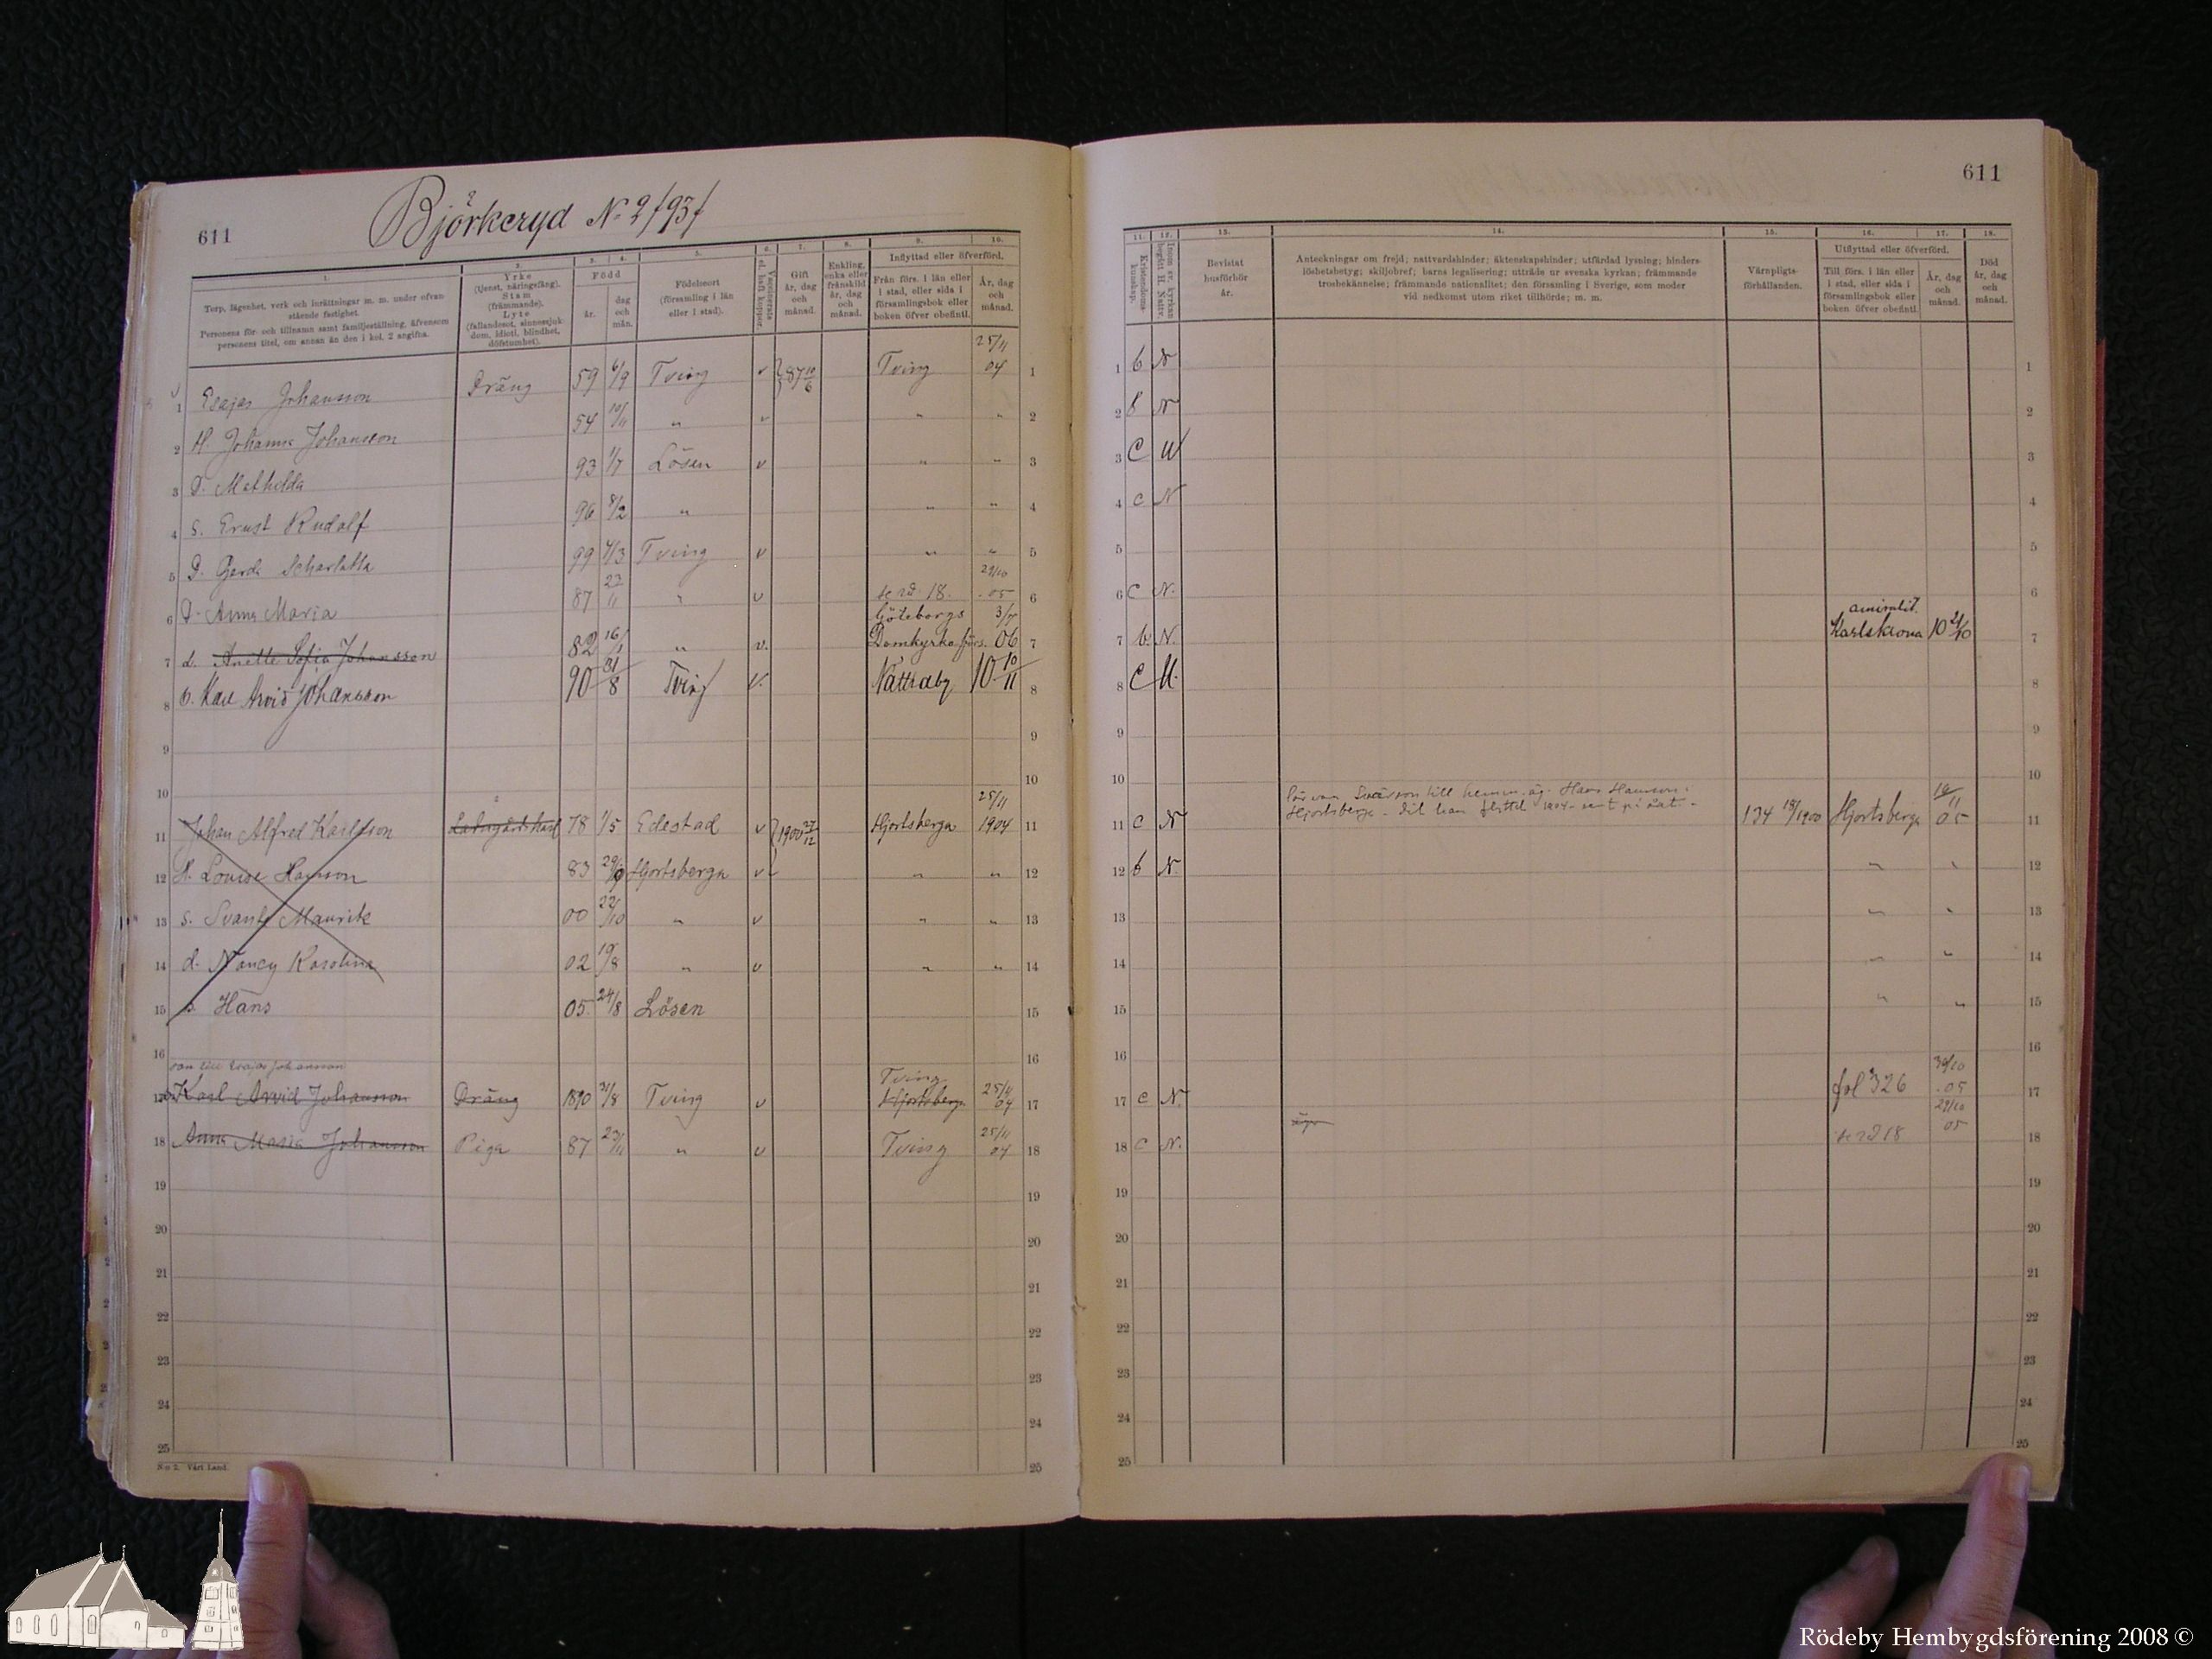 611
Björkeryd No 2 /93/
1.
Torp, lägenhet, verk och inrättningar m. m. under ofvan-
stående fastighet.
Personens för- och tillnamn samt familjeställning, äfvensom
personens titel, om annan än den i kol. 2 angifna.
2.
Yrke
(tjenst, näringsfång).
Stam
(främmande).
Lyte
(fallandesot, sinnessjuk-
dom, idioti, blindhet,
döfstumhet).
3. 4.
Född
år.
dag
och
mån.
5.
Födelseort
(församling i län
eller i stad).
6.
Vaccinerats
el. haft koppor.
7.
Gift
år, dag
och
månad.
8.
Enkling,
enka eller
frånskild
år, dag
och
månad.
9. 10.
Inflyttad eller öfverförd.
Från förs. i län eller
i stad, eller sida i
församlingsbok eller
boken öfver obefintl.
År, dag
och
månad.
1 Esajas Johansson Dräng 59 6/9 Tving v 87 10/6 Tving 25/11 04 1
2 H. Johanna Johansson 54 10/11 " v " " 2
3 D. Mathilda 93 1/7 Lösen v " " 3
4 S. Ernst Rudolf 96 8/2 " " " 4
5 D. Gerda Scharlotta 99 4/3 Tving v " " 5
6 D. Anna Maria 87 23/11 " v se rd 18. 29/10 05 6
7 d. Anette Sofia Johansson 82 16/1 " v. Göteborgs Domkyrko förs. 3/11 06 7
8 S. Karl Arvid Johansson 90 31/8 Tving v. Nättraby 10 10/11 8
9 9
10 10
11 Johan Alfred Karlsson Ladugårdskarl 78 1/5 Edestad v 1900 27/12 Hjortsberga 25/11 1904 11
12 H. Louise Hansson 83 29/9 Hjortsberga v " " 12
13 s. Svante Mauritz 00 22/10 " v " " 13
14 d. Nancy Karolina 02 19/8 " v " " 14
15 s. Hans 05 24/8 Lösen 15
16 16
son till Esajas Johansson
17 Karl Arvid Johansson Dräng 1890 31/8 Tving v Tving Hjortsberga 25/11 04 17
18 Anna Maria Johansson Piga 87 23/11 " v Tving 25/11 04 18
19 19
20 20
21 21
22 22
23 23
24 24
25 25
No 2. Vårt Land.
611
11.
Kristendoms-
kunskap.
12.
Inom sv. kyrkan
begått H. Nattv.
13.
Bevistat
husförhör
år.
14.
Anteckningar om frejd; nattvardshinder; äktenskapshinder; utfärdad lysning; hinders-
löshetsbetyg; skiljobref; barns legalisering; utträde ur svenska kyrkan; främmande
trosbekännelse; främmande nationalitet; den församling i Sverige, som moder
vid nedkomst utom riket tillhörde; m. m.
15.
Värnpligts-
förhållanden.
16. 17.
Utflyttad eller öfverförd.
Till förs. i län eller
i stad, eller sida i
församlingsbok eller
boken öfver obefintl.
År, dag
och
månad.
18.
Död
år, dag
och
månad.
1 b N 1
2 b N 2
3 C N 3
4 c N 4
5 5
6 C N. 6
7 b. N. amiralit. Karlskrona 10 21/10 7
8 C N. 8
9 9
10 10
Hans Hansson i
Hjortsberga
11 c N 134 18/1900 Hjortsberga 16/11 05 11
12 b N. " " 12
13 " " 13
14 " " 14
15 " " 15
16 16
17 c N. fol 326 30/10 05 17
18 C N. se rd 18 29/10 05 18
19 19
20 20
21 21
22 22
23 23
24 24
25 25
Rödeby Hembygdsförening 2008 ©